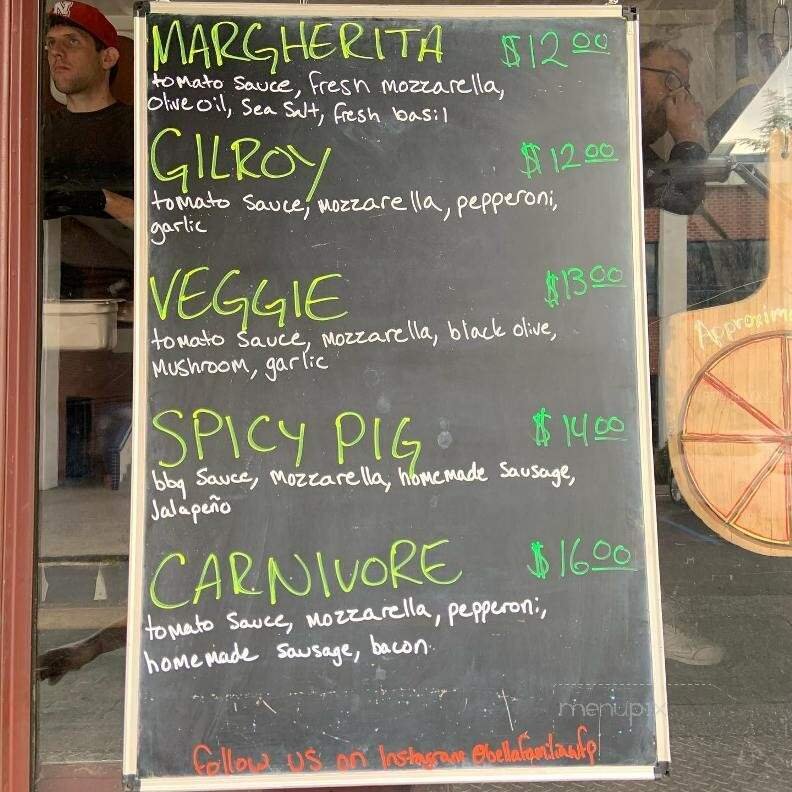 MARGHERITA $12.00
tomato sauce, fresh mozzarella,
olive oil, sea salt, fresh basil
GILROY $12.00
tomato sauce, mozzarella, pepperoni,
garlic
VEGGIE $13.00
tomato sauce, mozzarella, black olive,
mushroom, garlic
SPICY PIG $14.00
bbq sauce, mozzarella, homemade sausage,
Jalapeño
CARNIVORE $16.00
tomato sauce, mozzarella, pepperoni,
homemade sausage, bacon
follow us on Instagram @bellafamiliawfp
menupix
N